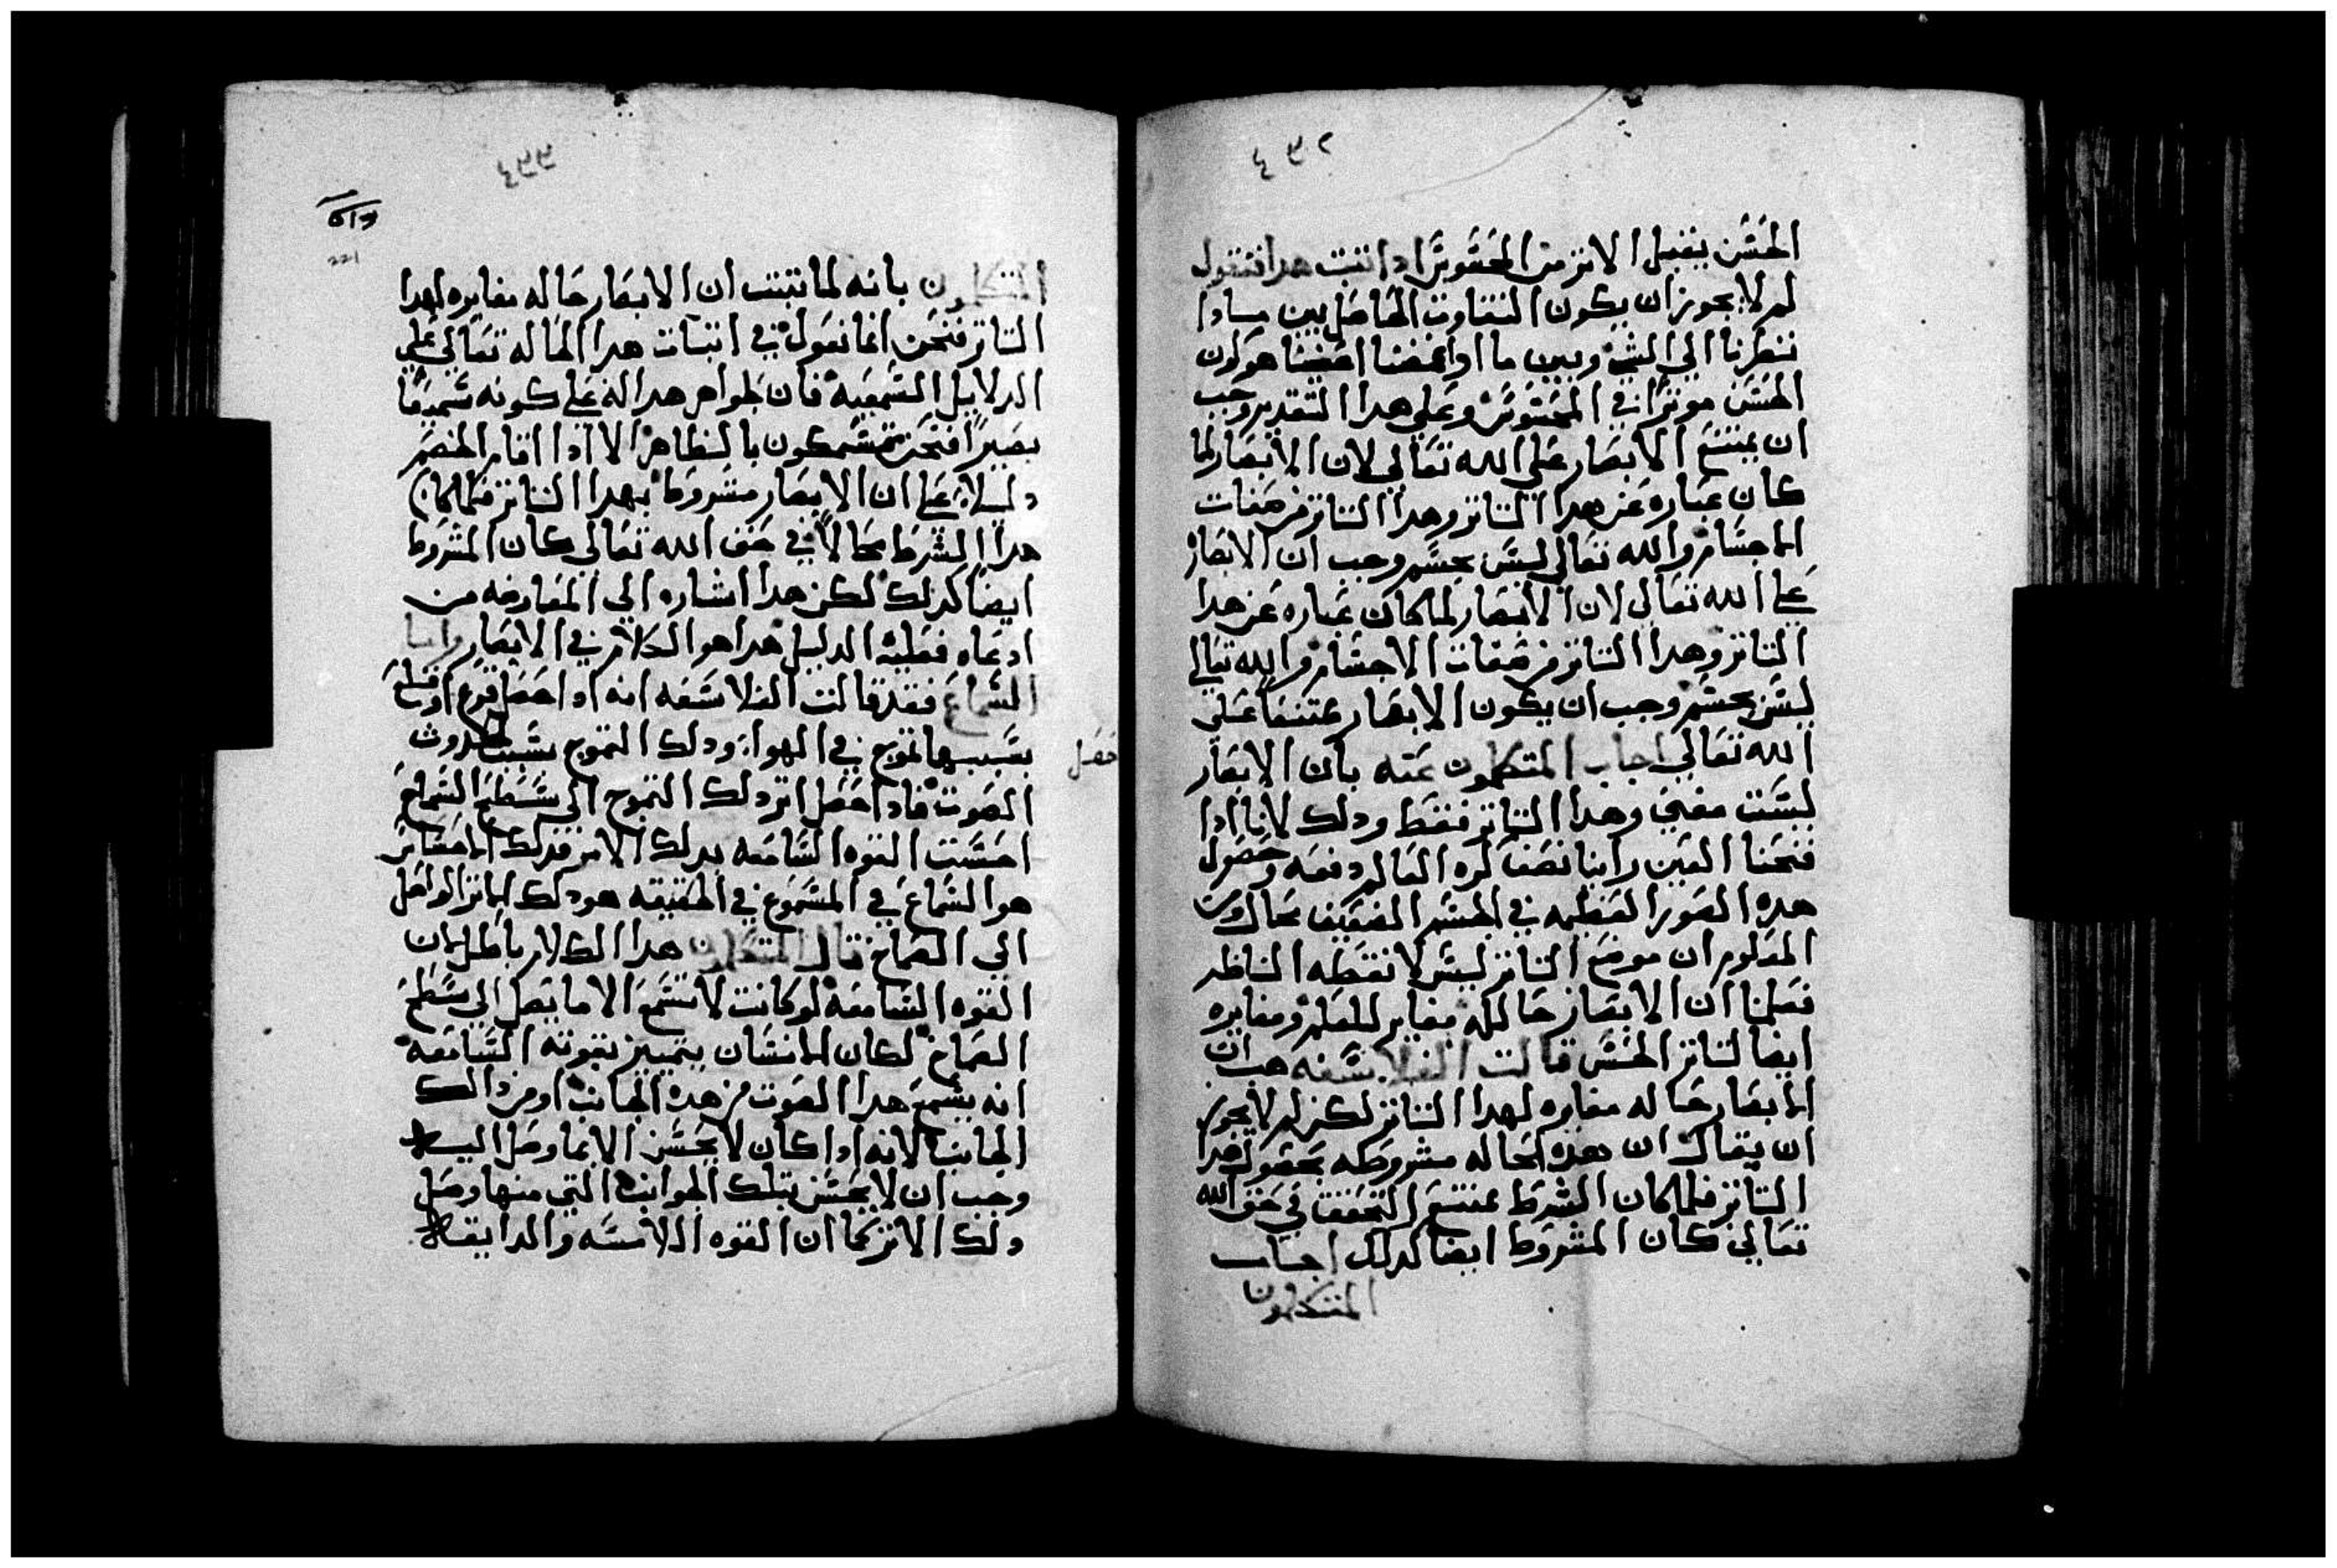 ٤٣٢
الحسن يقبل الاثر من المحسوس ادا تبت هدا فنقول
لم لا يجوز ان يكون التفاوت الحاصل بين ما ادا
نظرنا الي الشي وبين ما ادا غمضنا اعيننا هو كون
الحس موترا في المحسوس وعلي هدا التقدير وجب
ان يمتنع الابصار علي الله تعالي لان الابصار لما
كان عباره عن هدا التاتر وهدا التاتر من صفات
الاجسام والله تعالي ليس بجسم وجب ان الابصار
علي الله تعالي لان الابصار لما كان عباره عن هدا
التاتر وهدا التاتر من صفات الاجسام والله تعالي
ليس بجسم وجب ان يكون الابصار ممتنعا علي
الله تعالي اجاب المتكلمون عنه بان الابصار
ليست معني وهدا التاتر فقط ودلك لانا ادا
فتحنا العين راينا نصف كره العالم دفعه وحصول
هده الصور العظيمه في الجسم الضعيف محال ومن
المعلوم ان موضع التاتر ليس لا نقطه الناظر
فعلمنا ان الابصار حاله مغاير للعلم ومغايره
ايضا لتاتر الحس قالت الفلاسفه هب ان
الابصار حاله مغايره لهدا التاتر لكن لم لا يجوز
ان يقال ان هده الحاله مشروطه بحصول هدا
التاتر فلما كان الشرط ممتنع التحقق في حق الله
تعالي كان المشروط ايضا كدلك اجاب
المتكلمون
٤٣٣
221
المتكلمون بانه لما تبتت ان الابصار حاله مغايره لهدا
التاتر فنحن انما نعول في اتبات هدا الحاله تعالي علي
الدلايل السمعيه فان ظواهر هداله علي كونه سميعا
بصيرا فنحن متمسكون بالظاهر الا ادا اقام الخصم
دليلا علي ان الابصار مشروط بهدا التاتر فلما كان
هدا الشرط محالا في حق الله تعالي كان المشروط
ايضا كدلك لكن هدا اشاره الي المعارضه من
ادعاه فعليه الدليل هدا هو الكلام في الابصار واما
السماع فقد قالت الفلاسفه انه ادا حصل قرع او قلع
حصل
بسببهما تموج في الهواء ودلك التموج بسبب لحدوث
الصوت فادا حصل اتر دلك التموج الي سطح السماع
احست القوه السامعه بدلك الاتر فدلك الاحساس
هو السماع في المسموع في الحقيقه هو دلك الاتر الواصل
الي الصماخ قال المتكلمون هدا الكلام باطل لان
القوه السامعه لو كانت لا تسمع الا ما يصل الي سطح
الصماخ لكان الانسان يتميز بقوته السامعه
انه يسمع هدا الصوت من هده الجانب او من دالك
الجانب لانه ادا كان لا يحسن الا بما وصل اليه
وجب ان لا يحسن بتلك الجوانب التي منها وصل
دلك الاتر كما ان القوه اللامسه والدايقه